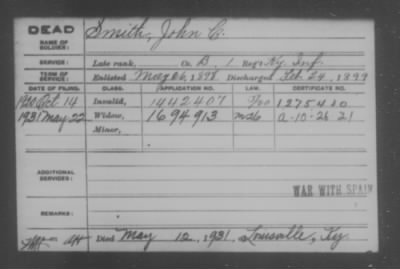 DEAD
NAME OF SOLDIER: Smith, John C.
SERVICE: Late rank, Co. B, 1 Reg't Ky. Inf.
TERM OF SERVICE: Enlisted May 26, 1898 Discharged Feb. 24, 1899
DATE OF FILING. CLASS. APPLICATION NO. LAW. CERTIFICATE NO.
1920 Oct. 14 Invalid, 1442407 1275420
1931 May 22 Widow, 1694913 a-10-26-21
Minor,
ADDITIONAL SERVICES:
WAR WITH SPAIN
REMARKS:
Died May 12, 1931, Louisville, Ky